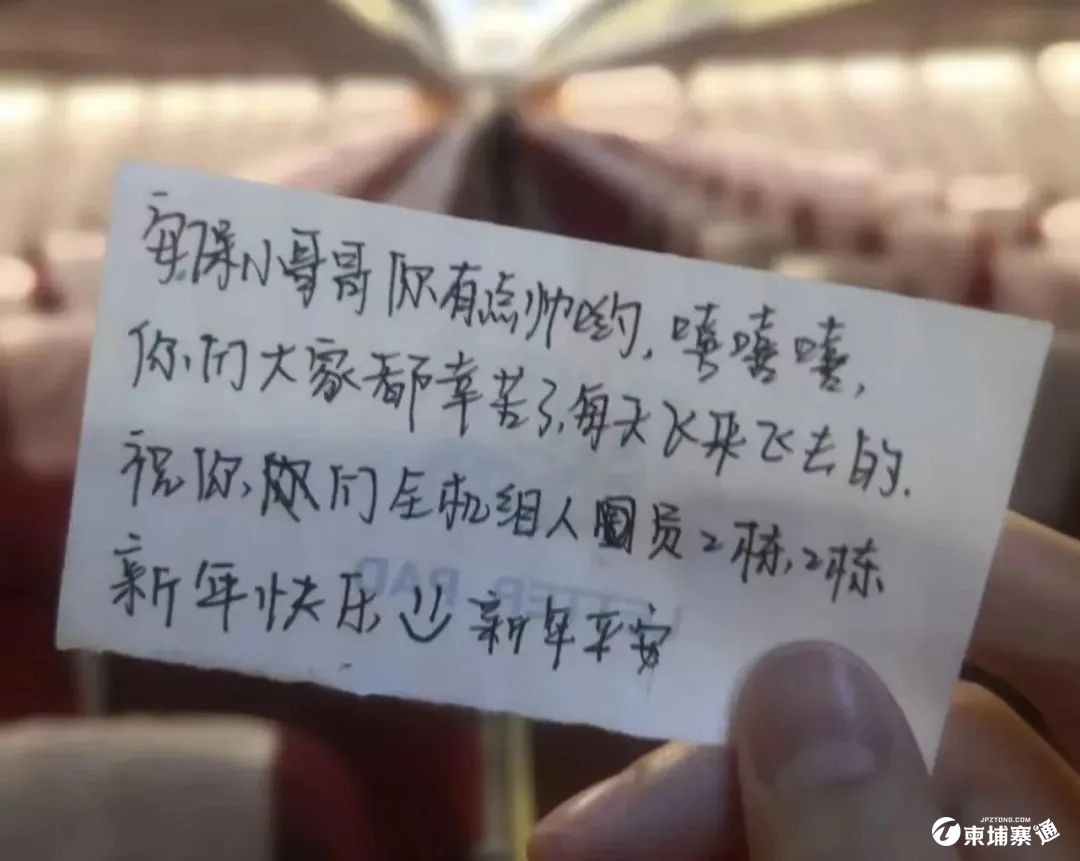 安保小哥哥你有点帅哟，嘻嘻嘻，
你们大家都幸苦了，每天飞来飞去的.
祝你，你们全机组人员2栋，2栋
新年快乐 新年平安
LETTER PAD
JPZTONG.COM
柬埔寨通